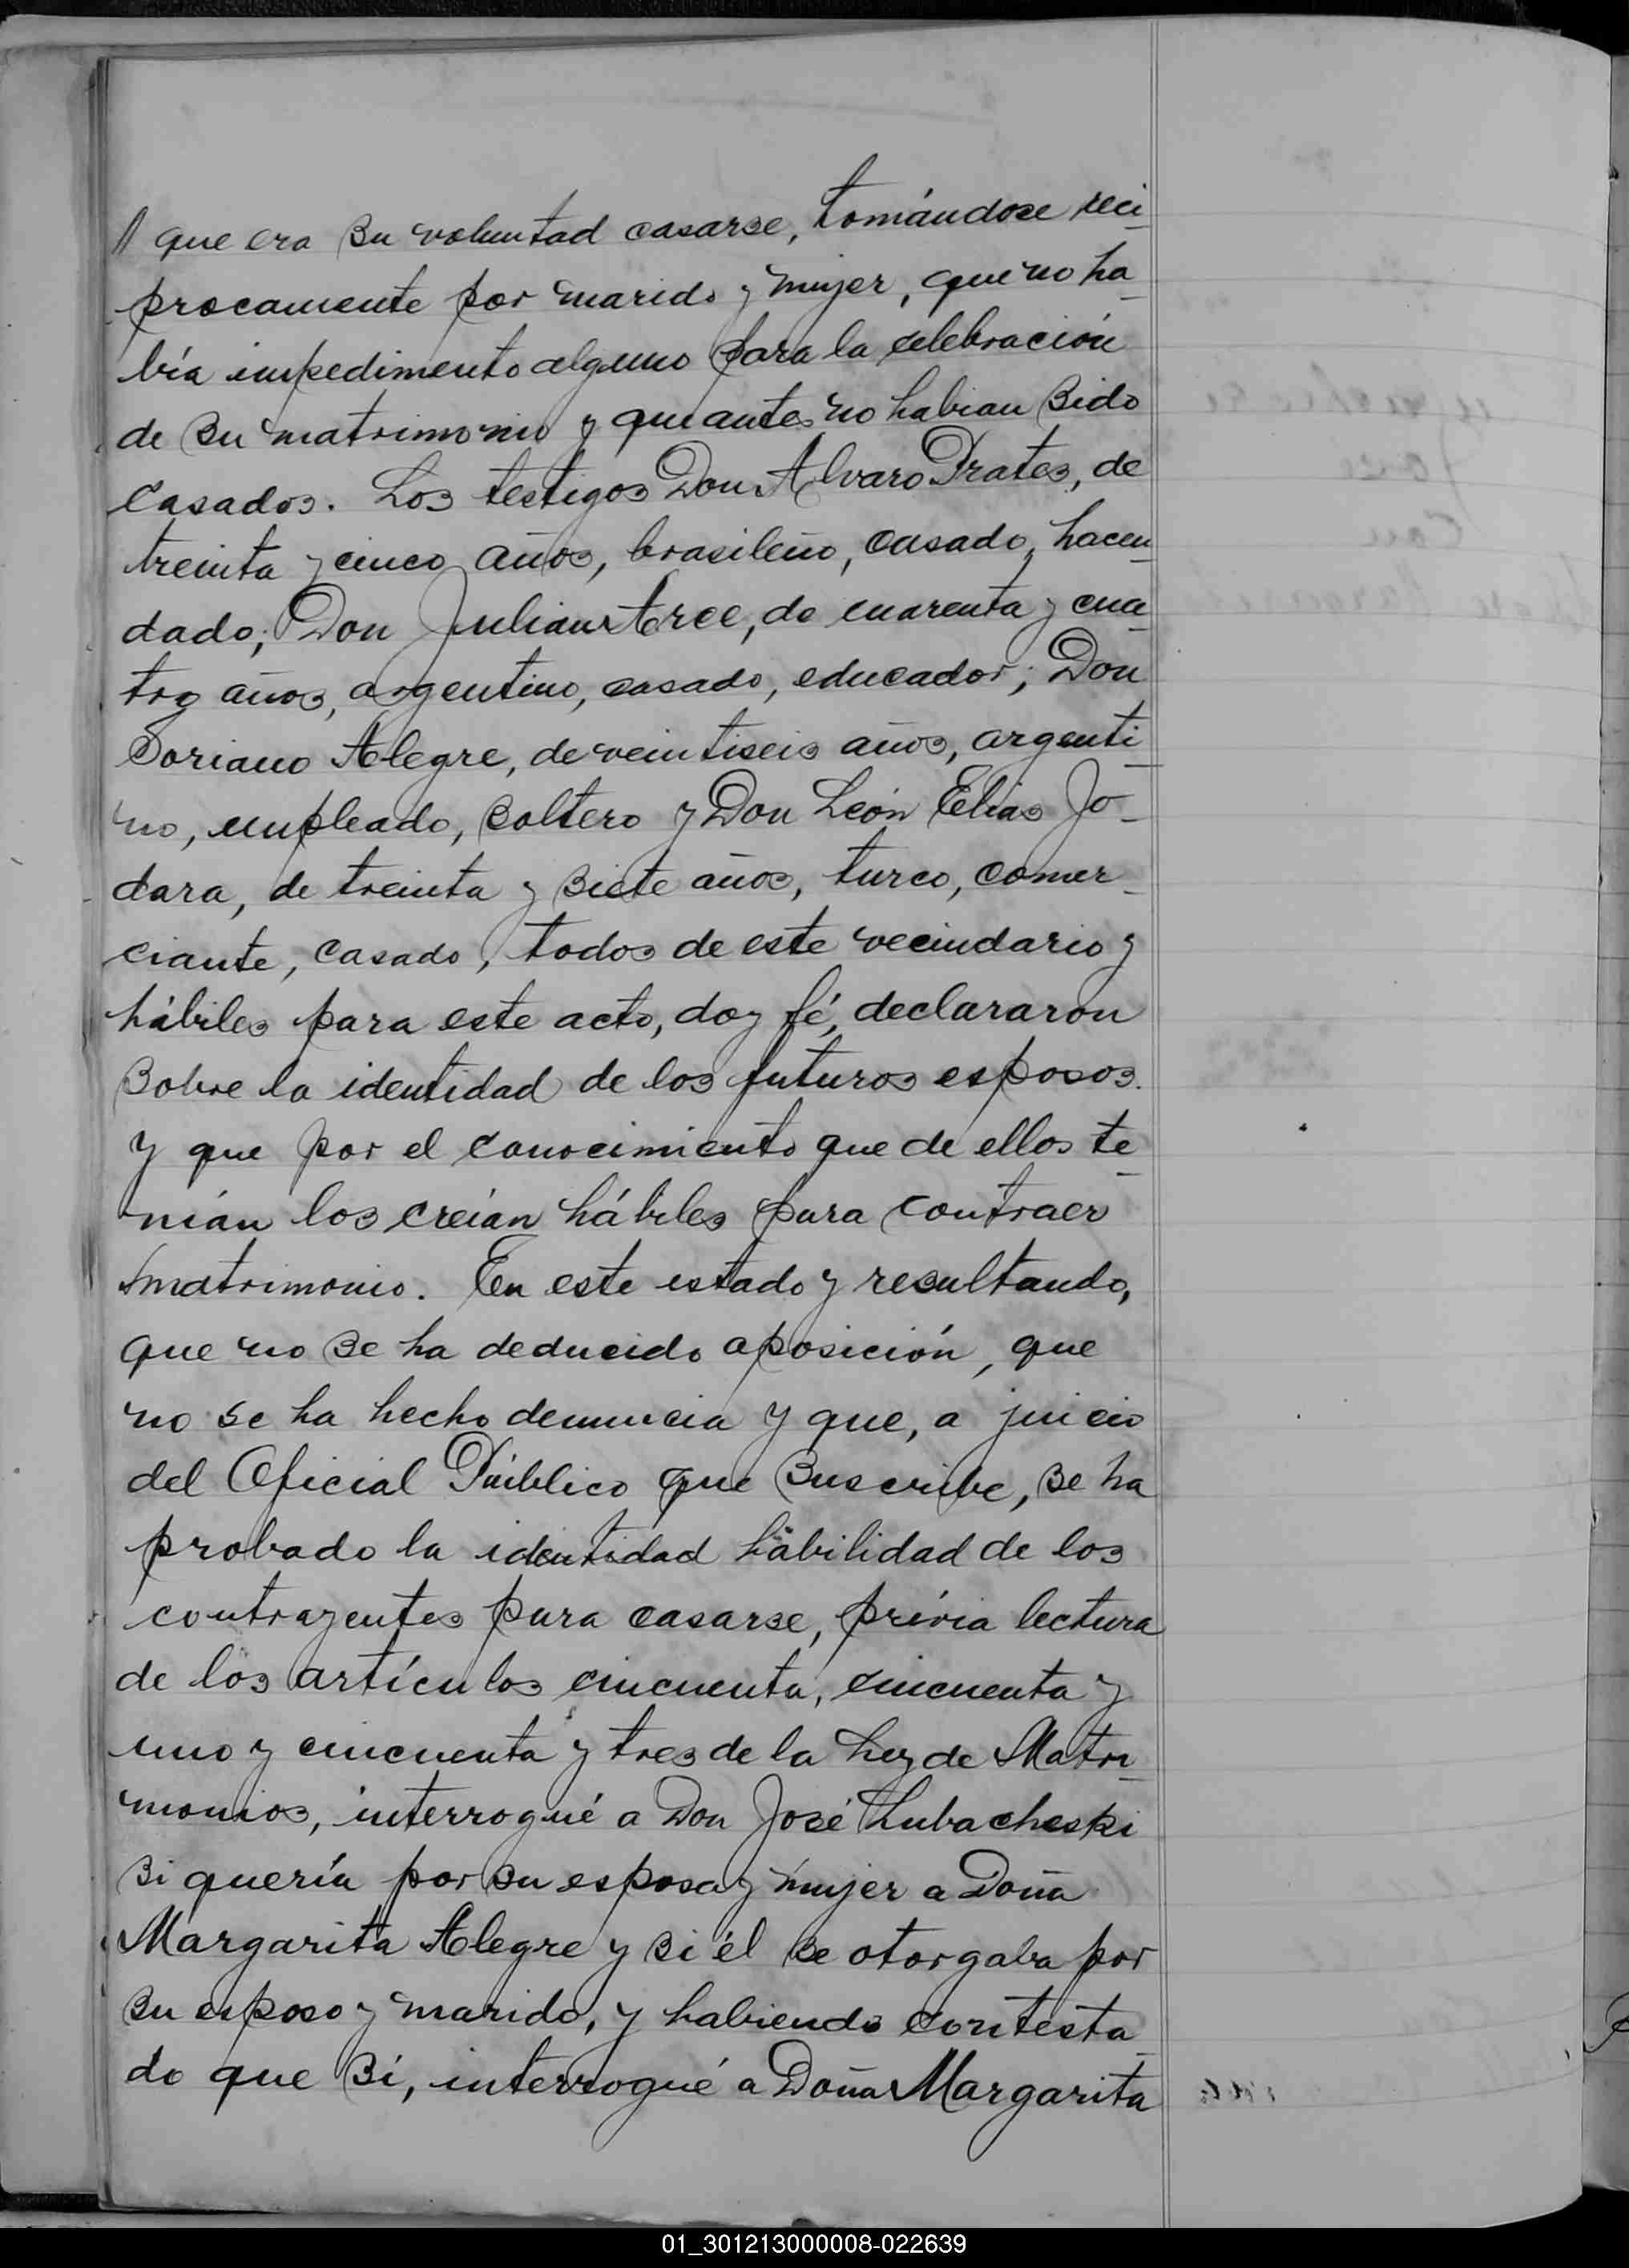 // que era su voluntad casarse, tomándose reci_
procamente por marido y mujer, que no ha_
bía impedimento alguno para la celebración
de su matrimonio y que antes no habian sido
casados. Los testigos Don Alvaro Prates, de
treinta y cinco años, brasileño, casado, hacen_
dado; Don Julian Arce, de cuarenta y cua_
tro años, argentino, casado, educador; Don
Soriano Alegre, de veintiseis años, argenti_
no, empleado, soltero y Don León Elias Jo_
dara, de treinta y siete años, turco, comer_
ciante, casado, todos de este vecindario y
hábiles para este acto, doy fé, declararon
sobre la identidad de los futuros esposos.
y que por el conocimiento que de ellos te_
nían los creían hábiles para contraer
matrimonio. En este estado y resultando,
que no se ha deducido oposición, que
no se ha hecho denuncia y que, a juicio
del Oficial Público que suscribe, se ha
probado la identidad habilidad de los
contrayentes para casarse, prévia lectura
de los artículos cincuenta, cincuenta y
uno y cincuenta y tres de la Ley de Matri_
monios, interrogué a Don José Lubacheski
si quería por su esposa y mujer a Doña
Margarita Alegre y si él se otorgaba por
su esposo y marido, y habiendo contesta_
do que sí, interrogué a Doña Margarita
01_301213000008-022639